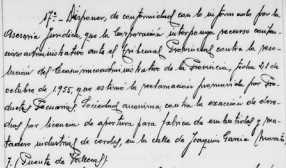 17º- Disponer, de conformidad con lo informado por la
Asesoria Juridica, que la Corporación interponga recurso conten-
cioso administrativo ante el Tribunal Provincial contra la reso-
lución del Economicoadministrativo de la Provincia, fecha 21 de
octubre de 1955, que estimó la reclamación promovida por Pro-
ductos Sociedad anonima contra la exacción de dere-
chos por licencia de apertura para fabrica de embutidos y ma-
tadero industrial de cerdos, en la calle de Joaquin Garcia
(Puente de Vallecas).